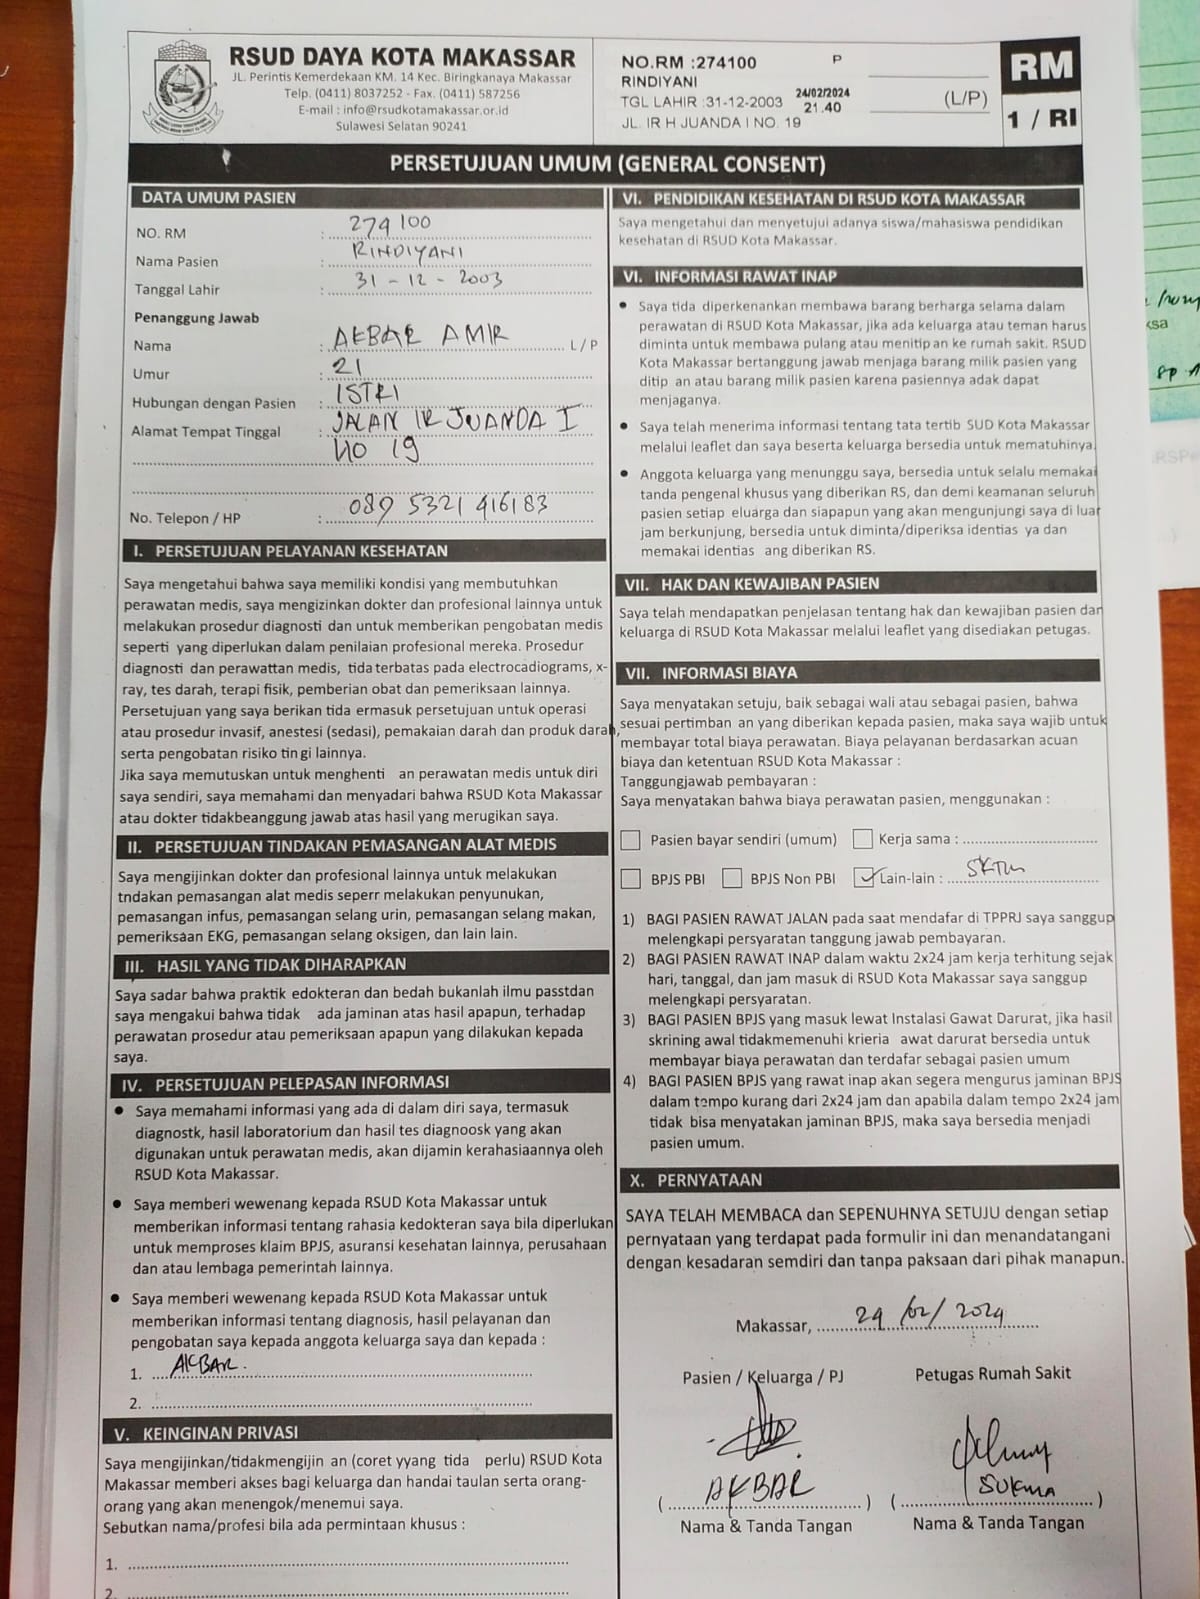 RSUD DAYA KOTA MAKASSAR
JL. Perintis Kemerdekaan KM. 14 Kec. Biringkanaya Makassar
Telp. (0411) 8037252 - Fax. (0411) 587256
E-mail : info@rsudkotamakassar.or.id
Sulawesi Selatan 90241
NO.RM :274100 P
RINDIYANI
TGL LAHIR :31-12-2003 24/02/2024 21.40 (L/P)
JL. IR H JUANDA I NO. 19
RM
1 / RI
PERSETUJUAN UMUM (GENERAL CONSENT)
DATA UMUM PASIEN
NO. RM : 274100
Nama Pasien : RINDIYANI
Tanggal Lahir : 31 - 12 - 2003
Penanggung Jawab
Nama : AKBAR AMIR L / P
Umur : 21
Hubungan dengan Pasien : ISTRI
Alamat Tempat Tinggal : JALAN IR JUANDA I
NO 19
No. Telepon / HP : 089 5321 416183
I. PERSETUJUAN PELAYANAN KESEHATAN
Saya mengetahui bahwa saya memiliki kondisi yang membutuhkan
perawatan medis, saya mengizinkan dokter dan profesional lainnya untuk
melakukan prosedur diagnosti dan untuk memberikan pengobatan medis
seperti yang diperlukan dalam penilaian profesional mereka. Prosedur
diagnosti dan perawattan medis, tida terbatas pada electrocadiograms, x-
ray, tes darah, terapi fisik, pemberian obat dan pemeriksaan lainnya.
Persetujuan yang saya berikan tida ermasuk persetujuan untuk operasi
atau prosedur invasif, anestesi (sedasi), pemakaian darah dan produk darah,
serta pengobatan risiko tin gi lainnya.
Jika saya memutuskan untuk menghenti an perawatan medis untuk diri
saya sendiri, saya memahami dan menyadari bahwa RSUD Kota Makassar
atau dokter tidakbeanggung jawab atas hasil yang merugikan saya.
II. PERSETUJUAN TINDAKAN PEMASANGAN ALAT MEDIS
Saya mengijinkan dokter dan profesional lainnya untuk melakukan
tndakan pemasangan alat medis seperr melakukan penyunukan,
pemasangan infus, pemasangan selang urin, pemasangan selang makan,
pemeriksaan EKG, pemasangan selang oksigen, dan lain lain.
III. HASIL YANG TIDAK DIHARAPKAN
Saya sadar bahwa praktik edokteran dan bedah bukanlah ilmu passtdan
saya mengakui bahwa tidak ada jaminan atas hasil apapun, terhadap
perawatan prosedur atau pemeriksaan apapun yang dilakukan kepada
saya.
IV. PERSETUJUAN PELEPASAN INFORMASI
• Saya memahami informasi yang ada di dalam diri saya, termasuk
diagnostk, hasil laboratorium dan hasil tes diagnoosk yang akan
digunakan untuk perawatan medis, akan dijamin kerahasiaannya oleh
RSUD Kota Makassar.
• Saya memberi wewenang kepada RSUD Kota Makassar untuk
memberikan informasi tentang rahasia kedokteran saya bila diperlukan
untuk memproses klaim BPJS, asuransi kesehatan lainnya, perusahaan
dan atau lembaga pemerintah lainnya.
• Saya memberi wewenang kepada RSUD Kota Makassar untuk
memberikan informasi tentang diagnosis, hasil pelayanan dan
pengobatan saya kepada anggota keluarga saya dan kepada :
1. AKBAR.
2.
V. KEINGINAN PRIVASI
Saya mengijinkan/tidakmengijin an (coret yyang tida perlu) RSUD Kota
Makassar memberi akses bagi keluarga dan handai taulan serta orang-
orang yang akan menengok/menemui saya.
Sebutkan nama/profesi bila ada permintaan khusus :
1.
2.
VI. PENDIDIKAN KESEHATAN DI RSUD KOTA MAKASSAR
Saya mengetahui dan menyetujui adanya siswa/mahasiswa pendidikan
kesehatan di RSUD Kota Makassar.
VI. INFORMASI RAWAT INAP
• Saya tida diperkenankan membawa barang berharga selama dalam
perawatan di RSUD Kota Makassar, jika ada keluarga atau teman harus
diminta untuk membawa pulang atau menitip an ke rumah sakit. RSUD
Kota Makassar bertanggung jawab menjaga barang milik pasien yang
ditip an atau barang milik pasien karena pasiennya adak dapat
menjaganya.
• Saya telah menerima informasi tentang tata tertib SUD Kota Makassar
melalui leaflet dan saya beserta keluarga bersedia untuk mematuhinya.
• Anggota keluarga yang menunggu saya, bersedia untuk selalu memakai
tanda pengenal khusus yang diberikan RS, dan demi keamanan seluruh
pasien setiap eluarga dan siapapun yang akan mengunjungi saya di luar
jam berkunjung, bersedia untuk diminta/diperiksa identias ya dan
memakai identias ang diberikan RS.
VII. HAK DAN KEWAJIBAN PASIEN
Saya telah mendapatkan penjelasan tentang hak dan kewajiban pasien dan
keluarga di RSUD Kota Makassar melalui leaflet yang disediakan petugas.
VII. INFORMASI BIAYA
Saya menyatakan setuju, baik sebagai wali atau sebagai pasien, bahwa
sesuai pertimban an yang diberikan kepada pasien, maka saya wajib untuk
membayar total biaya perawatan. Biaya pelayanan berdasarkan acuan
biaya dan ketentuan RSUD Kota Makassar :
Tanggungjawab pembayaran :
Saya menyatakan bahwa biaya perawatan pasien, menggunakan :
Pasien bayar sendiri (umum) Kerja sama :
BPJS PBI BPJS Non PBI ✓ Lain-lain : SKTM
1) BAGI PASIEN RAWAT JALAN pada saat mendafar di TPPRJ saya sanggup
melengkapi persyaratan tanggung jawab pembayaran.
2) BAGI PASIEN RAWAT INAP dalam waktu 2x24 jam kerja terhitung sejak
hari, tanggal, dan jam masuk di RSUD Kota Makassar saya sanggup
melengkapi persyaratan.
3) BAGI PASIEN BPJS yang masuk lewat Instalasi Gawat Darurat, jika hasil
skrining awal tidakmemenuhi krieria awat darurat bersedia untuk
membayar biaya perawatan dan terdafar sebagai pasien umum
4) BAGI PASIEN BPJS yang rawat inap akan segera mengurus jaminan BPJS
dalam tempo kurang dari 2x24 jam dan apabila dalam tempo 2x24 jam
tidak bisa menyatakan jaminan BPJS, maka saya bersedia menjadi
pasien umum.
X. PERNYATAAN
SAYA TELAH MEMBACA dan SEPENUHNYA SETUJU dengan setiap
pernyataan yang terdapat pada formulir ini dan menandatangani
dengan kesadaran semdiri dan tanpa paksaan dari pihak manapun.
Makassar, 24/02/2024
Pasien / Keluarga / PJ Petugas Rumah Sakit
( AKBAR ) ( SUKMA )
Nama & Tanda Tangan Nama & Tanda Tangan